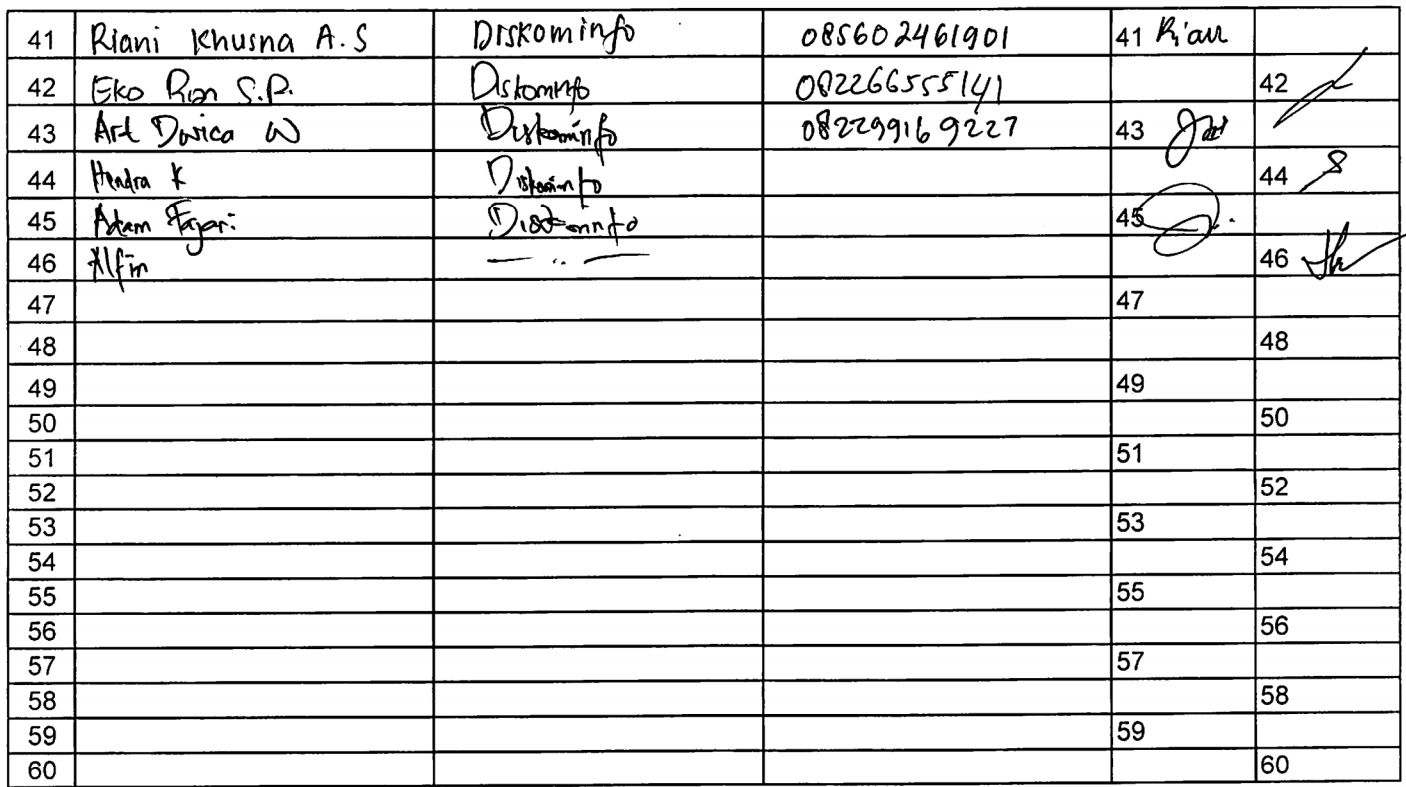 41 Riani Khusna A.S Diskominfo 085602461901 41 Riani
42 Eko Rian S.P. Diskominfo 082266555141 42
43 Art W Diskominfo 082299169227 43
44 Hendra K Diskominfo 44
45 Adam Fajari Diskominfo 45
46 Alfin — .. — 46
47 47
48 48
49 49
50 50
51 51
52 52
53 53
54 54
55 55
56 56
57 57
58 58
59 59
60 60